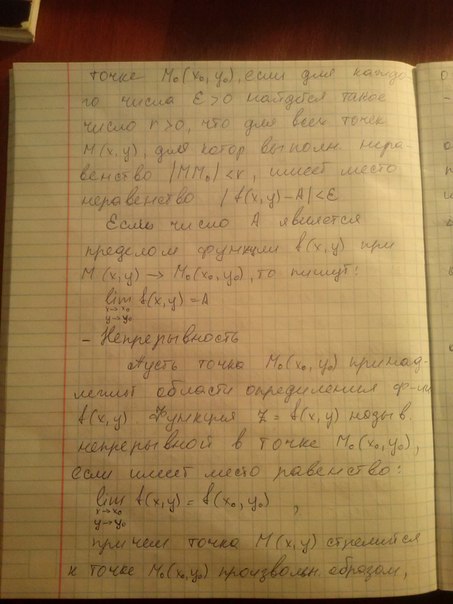 точке M₀(x₀, y₀), если для каждо-
го числа ε>0 найдётся такое
число r>0, что для всех точек
M(x,y), для котор выполн. нера-
венство |MM₀|<r, имеет место
неравенство |f(x,y)-A|<ε
Если число A является
пределом функции f(x,y) при
M(x,y) → M₀(x₀,y₀), то пишут:
lim f(x,y)=A
x→x₀
y→y₀
- Непрерывность
Пусть точка M₀(x₀, y₀) принад-
лежит области определения ф-ии
f(x,y) Функция Z = f(x,y) назыв.
непрерывной в точке M₀(x₀,y₀),
если имеет место равенство:
lim f(x,y) = f(x₀, y₀) ,
x→x₀
y→y₀
причем точка M(x,y) стремится
к точке M₀(x₀,y₀) произвольн. образом,